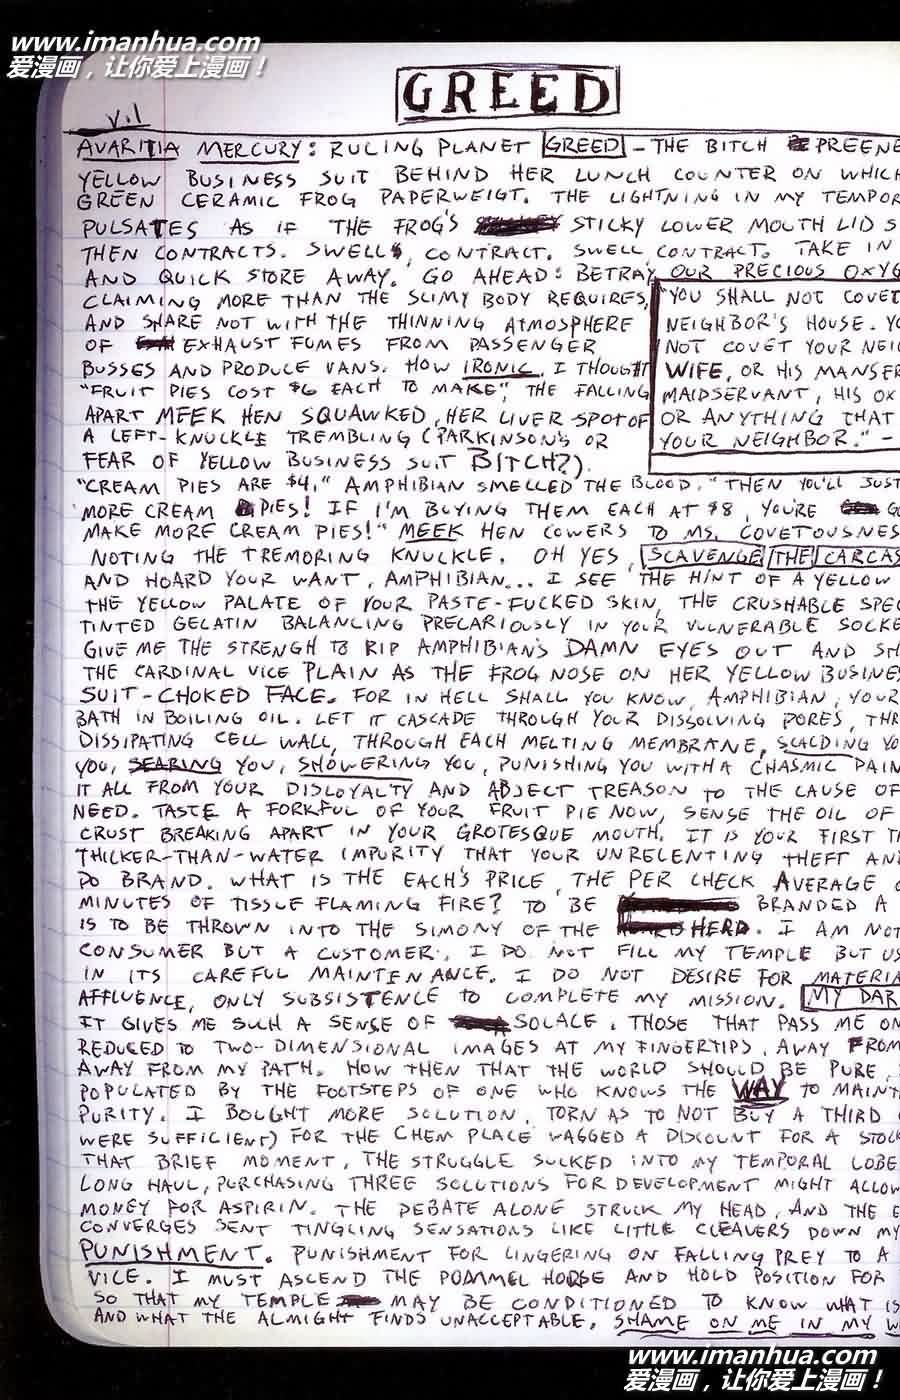 www.imanhua.com
爱漫画，让你爱上漫画！
GREED
V.1
AVARITIA MERCURY: RULING PLANET GREED - THE BITCH PREENE
YELLOW BUSINESS SUIT BEHIND HER LUNCH COUNTER ON WHICH
GREEN CERAMIC FROG PAPERWEIGT. THE LIGHTNING IN MY TEMPOR
PULSATES AS IF THE FROG'S STICKY LOWER MOUTH LID S
THEN CONTRACTS. SWELLS, CONTRACT. SWELL, CONTRACT. TAKE IN
AND QUICK STORE AWAY. GO AHEAD: BETRAY OUR PRECIOUS OXYG
CLAIMING MORE THAN THE SLIMY BODY REQUIRES,
AND SHARE NOT WITH THE THINNING ATMOSPHERE
OF EXHAUST FUMES FROM PASSENGER
BUSSES AND PRODUCE VANS. HOW IRONIC. I THOUGHT
"FRUIT PIES COST $6 EACH TO MAKE", THE FALLING
APART MEEK HEN SQUAWKED, HER LIVER SPOT OF
A LEFT-KNUCKLE TREMBLING (PARKINSON'S OR
FEAR OF YELLOW BUSINESS SUIT BITCH?).
"YOU SHALL NOT COVET
NEIGHBOR'S HOUSE. YO
NOT COVET YOUR NEIG
WIFE, OR HIS MANSER
MAIDSERVANT, HIS OX
OR ANYTHING THAT
YOUR NEIGHBOR." -
"CREAM PIES ARE $4," AMPHIBIAN SMELLED THE BLOOD. "THEN YOU'LL JUST
MORE CREAM PIES! IF I'M BUYING THEM EACH AT $8, YOU'RE GO
MAKE MORE CREAM PIES!" MEEK HEN COWERS TO MS. COVETOUSNES
NOTING THE TREMORING KNUCKLE. OH YES, SCAVENGE THE CARCAS
AND HOARD YOUR WANT, AMPHIBIAN... I SEE THE HINT OF A YELLOW
THE YELLOW PALATE OF YOUR PASTE-FUCKED SKIN, THE CRUSHABLE SPEC
TINTED GELATIN BALANCING PRECARIOUSLY IN YOUR VULNERABLE SOCKE
GIVE ME THE STRENGH TO RIP AMPHIBIAN'S DAMN EYES OUT AND SH
THE CARDINAL VICE PLAIN AS THE FROG NOSE ON HER YELLOW BUSINES
SUIT-CHOKED FACE. FOR IN HELL SHALL YOU KNOW, AMPHIBIAN, YOUR
BATH IN BOILING OIL. LET IT CASCADE THROUGH YOUR DISSOLVING PORES, THR
DISSIPATING CELL WALL, THROUGH EACH MELTING MEMBRANE, SCALDING YO
YOU, SEARING YOU, SHOWERING YOU, PUNISHING YOU WITH A CHASMIC PAIN
IT ALL FROM YOUR DISLOYALTY AND ABJECT TREASON TO THE CAUSE OF
NEED. TASTE A FORKFUL OF YOUR FRUIT PIE NOW, SENSE THE OIL OF
CRUST BREAKING APART IN YOUR GROTESQUE MOUTH. IT IS YOUR FIRST TA
THICKER-THAN-WATER IMPURITY THAT YOUR UNRELENTING THEFT AND
DO BRAND. WHAT IS THE EACH'S PRICE, THE PER CHECK AVERAGE O
MINUTES OF TISSUE FLAMING FIRE? TO BE BRANDED A
IS TO BE THROWN INTO THE SIMONY OF THE HERD. I AM NOT
CONSUMER BUT A CUSTOMER. I DO NOT FILL MY TEMPLE BUT US
IN ITS CAREFUL MAINTENANCE. I DO NOT DESIRE FOR MATERIA
AFFLUENCE, ONLY SUBSISTENCE TO COMPLETE MY MISSION. MY DAR
IT GIVES ME SUCH A SENSE OF SOLACE. THOSE THAT PASS ME ON
REDUCED TO TWO-DIMENSIONAL IMAGES AT MY FINGERTIPS, AWAY FROM
AWAY FROM MY PATH. HOW THEN THAT THE WORLD SHOULD BE PURE,
POPULATED BY THE FOOTSTEPS OF ONE WHO KNOWS THE WAY TO MAINT
PURITY. I BOUGHT MORE SOLUTION, TORN AS TO NOT BUY A THIRD
WERE SUFFICIENT) FOR THE CHEM PLACE WAGGED A DISCOUNT FOR A STOCK
THAT BRIEF MOMENT, THE STRUGGLE SULKED INTO MY TEMPORAL LOBE
LONG HAUL, PURCHASING THREE SOLUTIONS FOR DEVELOPMENT MIGHT ALLOW
MONEY FOR ASPIRIN. THE DEBATE ALONE STRUCK MY HEAD, AND THE E
CONVERGES SENT TINGLING SENSATIONS LIKE LITTLE CLEAVERS DOWN MY
PUNISHMENT. PUNISHMENT FOR LINGERING ON FALLING PREY TO A
VICE. I MUST ASCEND THE POMMEL HORSE AND HOLD POSITION FOR
SO THAT MY TEMPLE MAY BE CONDITIONED TO KNOW WHAT IS
AND WHAT THE ALMIGHT FINDS UNACCEPTABLE. SHAME ON ME IN MY W
www.imanhua.com
爱漫画，让你爱上漫画！